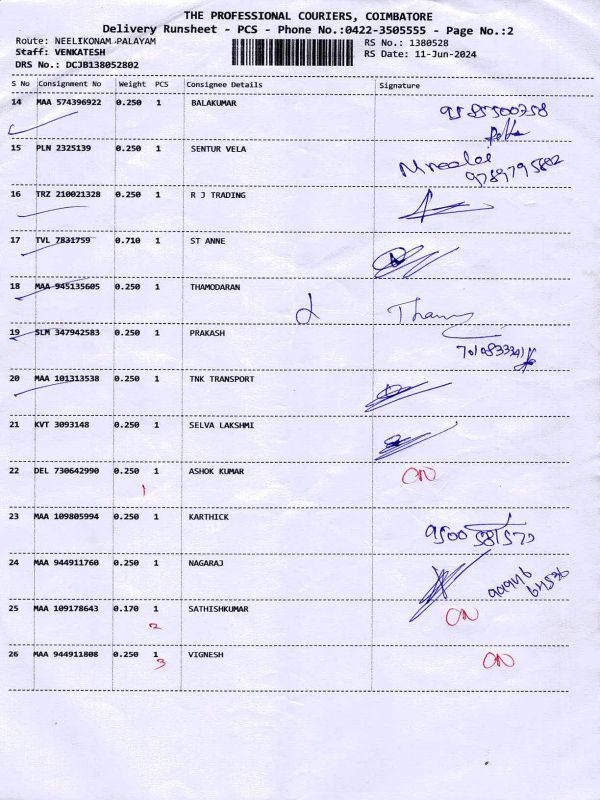 THE PROFESSIONAL COURIERS, COIMBATORE
Delivery Runsheet - PCS - Phone No.:0422-3505555 - Page No.:2
Route: NEELIKONAM PALAYAM RS No.: 1380528
Staff: VENKATESH RS Date: 11-Jun-2024
DRS No.: DCJB138052802
S No Consignment No Weight PCS Consignee Details Signature
14 MAA 574396922 0.250 1 BALAKUMAR
15 PLN 2325139 0.250 1 SENTUR VELA
9789795802
16 TRZ 210021328 0.250 1 R J TRADING
17 TVL 7831759 0.710 1 ST ANNE
18 MAA 945135605 0.250 1 THAMODARAN
19 SLM 347942583 0.250 1 PRAKASH
20 MAA 101313538 0.250 1 TNK TRANSPORT
21 KVT 3093148 0.250 1 SELVA LAKSHMI
22 DEL 730642990 0.250 1 ASHOK KUMAR ON
1
23 MAA 109805994 0.250 1 KARTHICK
9500 581570
24 MAA 944911760 0.250 1 NAGARAJ
25 MAA 109178643 0.170 1 SATHISHKUMAR ON
2
26 MAA 944911808 0.250 1 VIGNESH ON
3